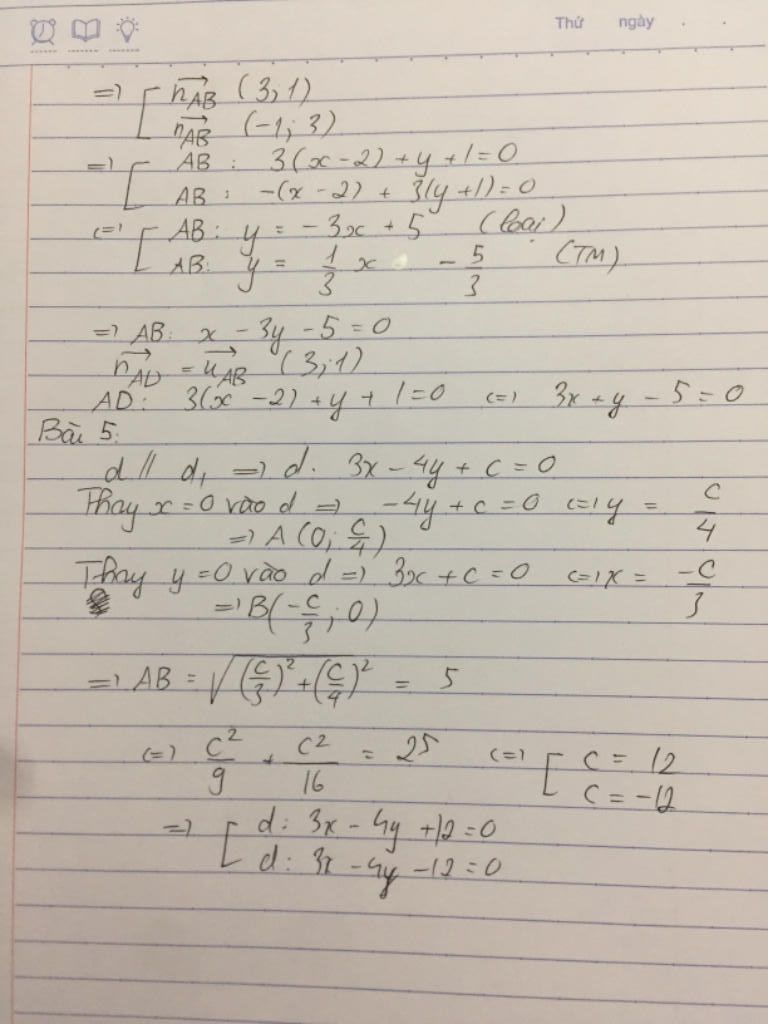 Thứ ngày . .
=> [ n_AB→ (3;1)
n_AB→ (-1; 3)
=> [ AB : 3(x-2) + y + 1 = 0
AB : -(x - 2) + 3(y+1) = 0
<=> [ AB: y = -3x + 5 (loại)
AB: y = 1/3 x - 5/3 (TM)
=> AB: x - 3y - 5 = 0
n_AD→ = u_AB→ (3;1)
AD: 3(x-2) + y + 1 = 0 <=> 3x + y - 5 = 0
Bài 5:
d // d₁ => d. 3x - 4y + c = 0
Thay x = 0 vào d => -4y + c = 0 <=> y = c/4
=> A(0; c/4)
Thay y = 0 vào d => 3x + c = 0 <=> x = -c/3
=> B(-c/3; 0)
=> AB = √((c/3)² + (c/4)²) = 5
<=> c²/9 + c²/16 = 25 <=> [ c = 12
c = -12
=> [ d: 3x - 4y + 12 = 0
d: 3x - 4y - 12 = 0